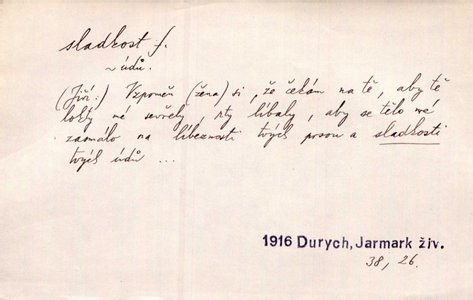 sladkost f.
~ údů.
(Jiří:) Vzpomeň (ženo) si, že čekám na tě, aby tě
lokty mé sevřely, rty líbaly, aby se tělo mé
zaomálo na líbeznosti tvých prsou a sladkosti
tvých údů ...
1916 Durych, Jarmark živ.
38, 26.